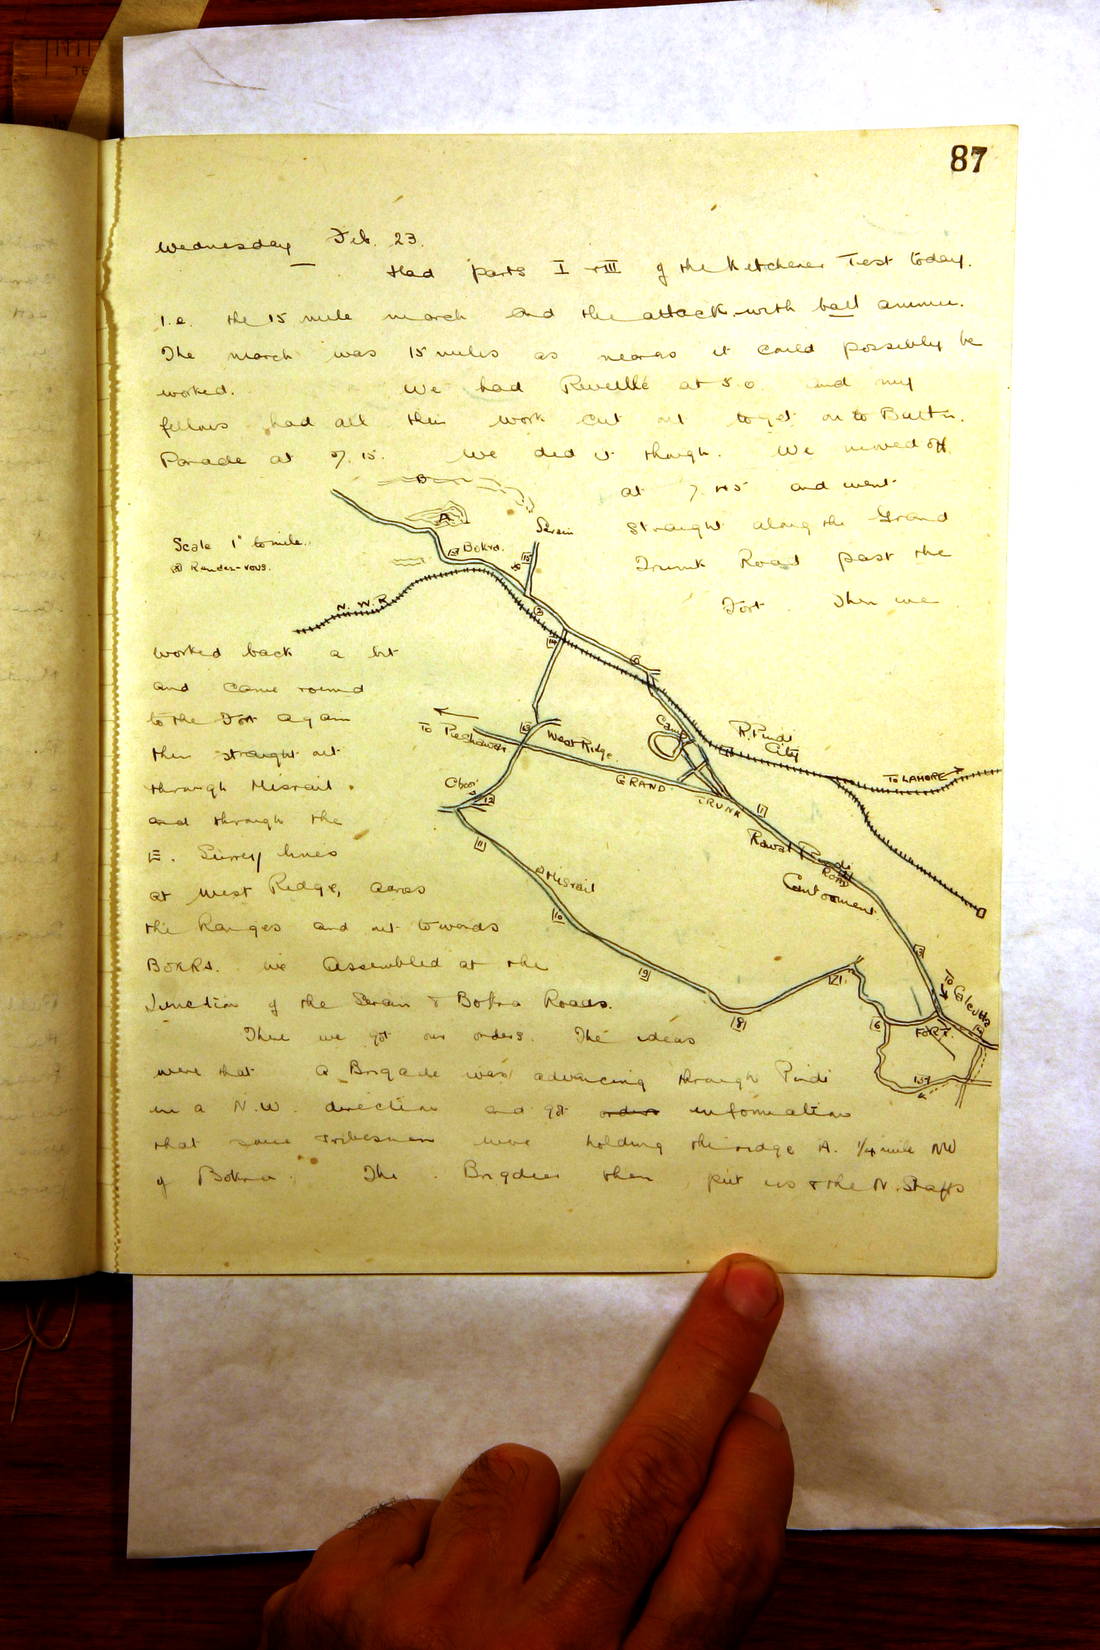 87
Wednesday Feb. 23.
Had parts I & III of the Kitchener Test today.
I.e. the 15 mile march and the attack with ball ammun.
The march was 15 miles as near as it could possibly be
worked. We had Reveillé at 5.0 and my
fellows had all their work cut out to get on to Battn.
Parade at 7.15. We did it though. We moved off
at 7.45 and went
straight along the Grand
Trunk Road past the
Fort. Then we
worked back a bit
and came round
to the Fort again
then straight out
through Misrail.
and through the
E. Surrey lines
at West Ridge, across
the Ranges and out towards
BOKRA. We assembled at the
Junction of the Serain & Bokra Roads.
There we got our orders. The ideas
were that a Brigade was advancing through Pindi
in a N.W. direction and got orders information
that some tribesmen were holding the ridge A. 1/4 mile NW
of Bokra. The Brigdier then put us & the N. Staffs
Scale 1" to mile.
Rendez-vous.
B
A
Serain
13 Bokra.
15
N.W.R.
14
To Peshawar
West Ridge.
Camp
R. Pindi
City
To LAHORE
GRAND TRUNK
1
Choor
12
11
Misrail
10
9
8
Rawal Pindi
Cantonment
Road
To Calcutta
6
FORT.